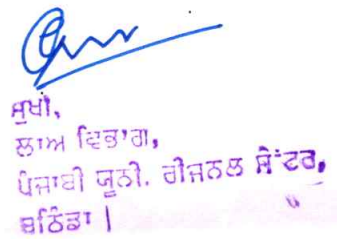 ਮੁਖੀ,
ਲਾਅ ਵਿਭਾਗ,
ਪੰਜਾਬੀ ਯੂਨੀ. ਰੀਜਨਲ ਸੈਂਟਰ,
ਬਠਿੰਡਾ |